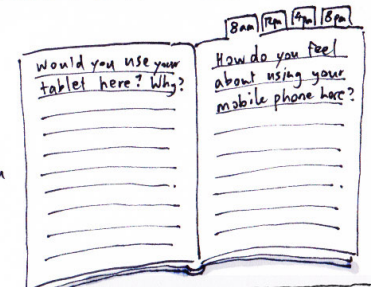 8am 12pm 4pm 8pm
Would you use your
tablet here? Why?
How do you feel
about using your
mobile phone here?